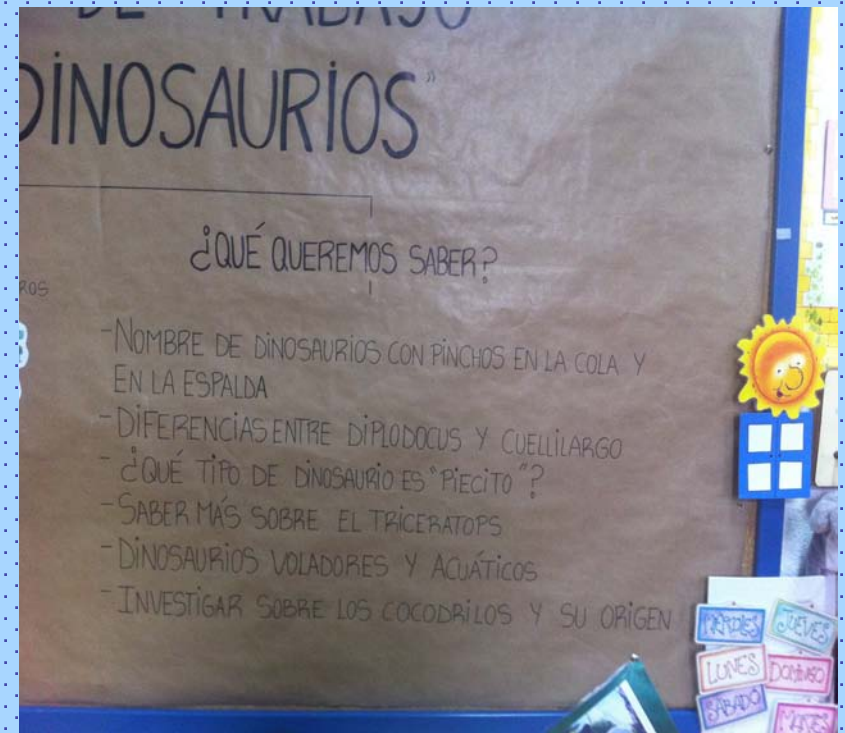 DE TRABAJO
DINOSAURIOS"
¿QUÉ QUEREMOS SABER?
ROS
-NOMBRE DE DINOSAURIOS CON PINCHOS EN LA COLA Y
EN LA ESPALDA
-DIFERENCIAS ENTRE DIPLODOCUS Y CUELLILARGO
- ¿QUÉ TIPO DE DINOSAURIO ES "PIECITO"?
-SABER MÁS SOBRE EL TRICERATOPS
-DINOSAURIOS VOLADORES Y ACUÁTICOS
-INVESTIGAR SOBRE LOS COCODRILOS Y SU ORIGEN
JUEVES
LUNES
DOMINGO
SÁBADO
MARTES